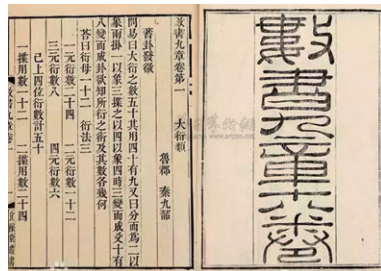 數書九章十八卷
數書九章卷第一　大衍類
魯郡　秦九韶
蓍卦發微
問易曰大衍之數五十其用四十有九又曰分而為二以
象兩掛一以象三揲之以四以象四時三變而成爻十有
八變而成卦欲知所衍之術及其數各幾何
荅曰衍母一十二　衍法三
一元衍數二十四　二元衍數一十二
三元衍數八　四元衍數六
已上四位衍數計五十
一揲用數一十二　二揲用數二十四
數書九章卷一
宜稼堂叢書